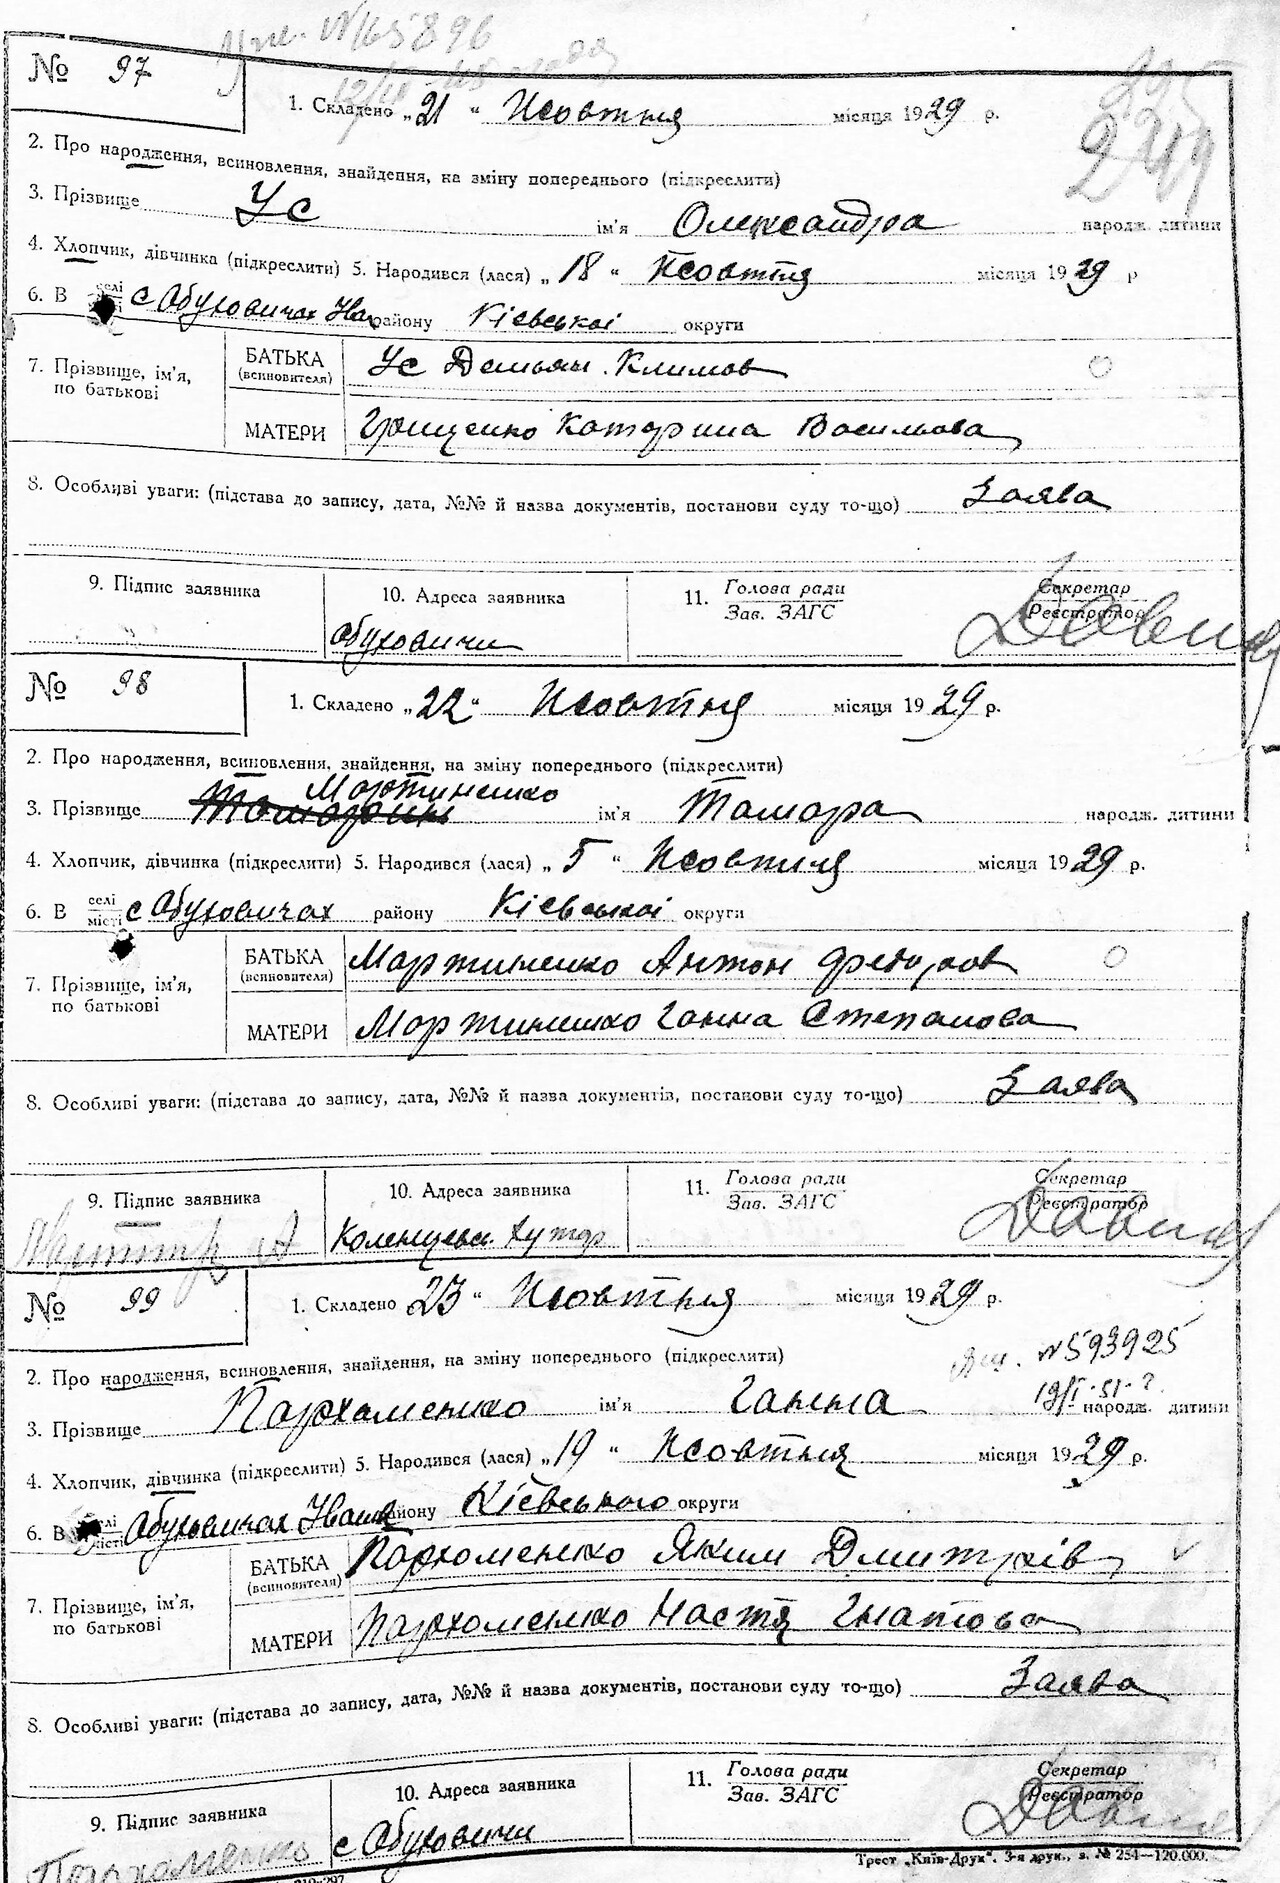 № 97
1. Складено „21“ Жовтня місяця 1929 р.
2. Про народження, всиновлення, знайдення, на зміну попереднього (підкреслити)
3. Прізвище Ус ім'я Олександра народж. дитини
4. Хлопчик, дівчинка (підкреслити) 5. Народився (лася) „18“ Жовтня місяця 1929 р
6. В селі місті с Обуховичах Іван району Кієвськаі округи
7. Прізвище, ім'я, по батькові
БАТЬКА (всиновителя) Ус Демьян Климов
МАТЕРИ Грищенко Катерина Васильова
8. Особливі уваги: (підстава до запису, дата, №№ й назва документів, постанови суду то-що) Заява
9. Підпис заявника
10. Адреса заявника
Обуховичи
11. Голова ради
Зав. ЗАГС
Секретар
Реєстратор
№ 98
1. Складено „22“ Жовтня місяця 1929 р.
2. Про народження, всиновлення, знайдення, на зміну попереднього (підкреслити)
Мартиненко
3. Прізвище ім'я Тамара народж. дитини
4. Хлопчик, дівчинка (підкреслити) 5. Народився (лася) „5“ Жовтня місяця 1929 р.
6. В селі місті с Обуховичах району Кієвськаі округи
7. Прізвище, ім'я, по батькові
БАТЬКА (всиновителя) Мартиненко Антон Федоров
МАТЕРИ Мартиненко Ганна Степанова
8. Особливі уваги: (підстава до запису, дата, №№ й назва документів, постанови суду то-що) Заява
9. Підпис заявника
10. Адреса заявника
Хутор
11. Голова ради
Зав. ЗАГС
Секретар
Реєстратор
№ 99
1. Складено „23“ Жовтня місяця 1929 р.
N 593925
2. Про народження, всиновлення, знайдення, на зміну попереднього (підкреслити)
3. Прізвище Пархоменко ім'я Ганна народж. дитини
4. Хлопчик, дівчинка (підкреслити) 5. Народився (лася) „19“ Жовтня місяця 1929 р.
6. В селі місті Обуховичах Іванк району Кієвського округи
7. Прізвище, ім'я, по батькові
БАТЬКА (всиновителя) Пархоменко Яким Дмитрів
МАТЕРИ Пархоменко Настя Гнатова
8. Особливі уваги: (підстава до запису, дата, №№ й назва документів, постанови суду то-що) Заява
9. Підпис заявника
Пархоменко
10. Адреса заявника
с Обуховичи
11. Голова ради
Зав. ЗАГС
Секретар
Реєстратор
Трест „Київ-Друк“. 3-я друк., з. № 254—120.000.